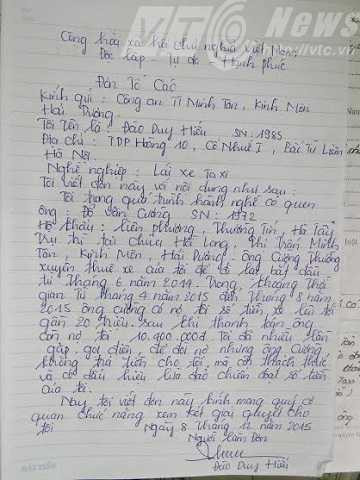 VTC News
http://vtc.vn
Cộng hòa xã hội chủ nghĩa việt Nam
Độc lập Tự do Hạnh phúc
Đơn Tố Cáo
Kính gửi: Công an TT Minh Tân, Kinh Môn
Hải Dương.
Tôi Tên là: Đào Duy Hiếu SN: 1985
Địa chỉ: TDP Hoàng 10, Cổ Nhuế 1, Bắc Từ Liêm
Hà Nội.
Nghề nghiệp: Lái xe Taxi
Tôi viết đơn này và nội dung như sau:
Tôi trong quá trình hành nghề có quen
ông: Đỗ Văn Cường SN: 1972
Hộ khẩu: Liên phương, Thường Tín, Hà Tây
Trụ trì tại chùa Hải Long, Thị Trấn Minh
Tân, Kinh Môn, Hải Dương. ông Cường Thường
xuyên thuê xe của tôi để đi lại, bắt đầu
từ Tháng 6 năm 2014. Trong khoảng Thời
gian Từ tháng 4 năm 2015 đến Tháng 8 năm
2015 ông cường có nợ Tôi số tiền xe lên tới
gần 20 triệu. sau khi thanh toán, ông
còn nợ tôi 10.400.000đ. Tôi đã nhiều lần
gặp, gọi điện, để đòi nợ nhưng ông Cường
không trả tiền cho tôi, mà còn thách thức
và có dấu hiệu lừa đảo chiếm đoạt số tiền
của tôi.
Nay tôi viết đơn này kính mong quý cơ
quan chức năng xem xét giải quyết cho
tôi Ngày 8 Tháng 12 năm 2015
Người làm đơn
Đào Duy Hiếu